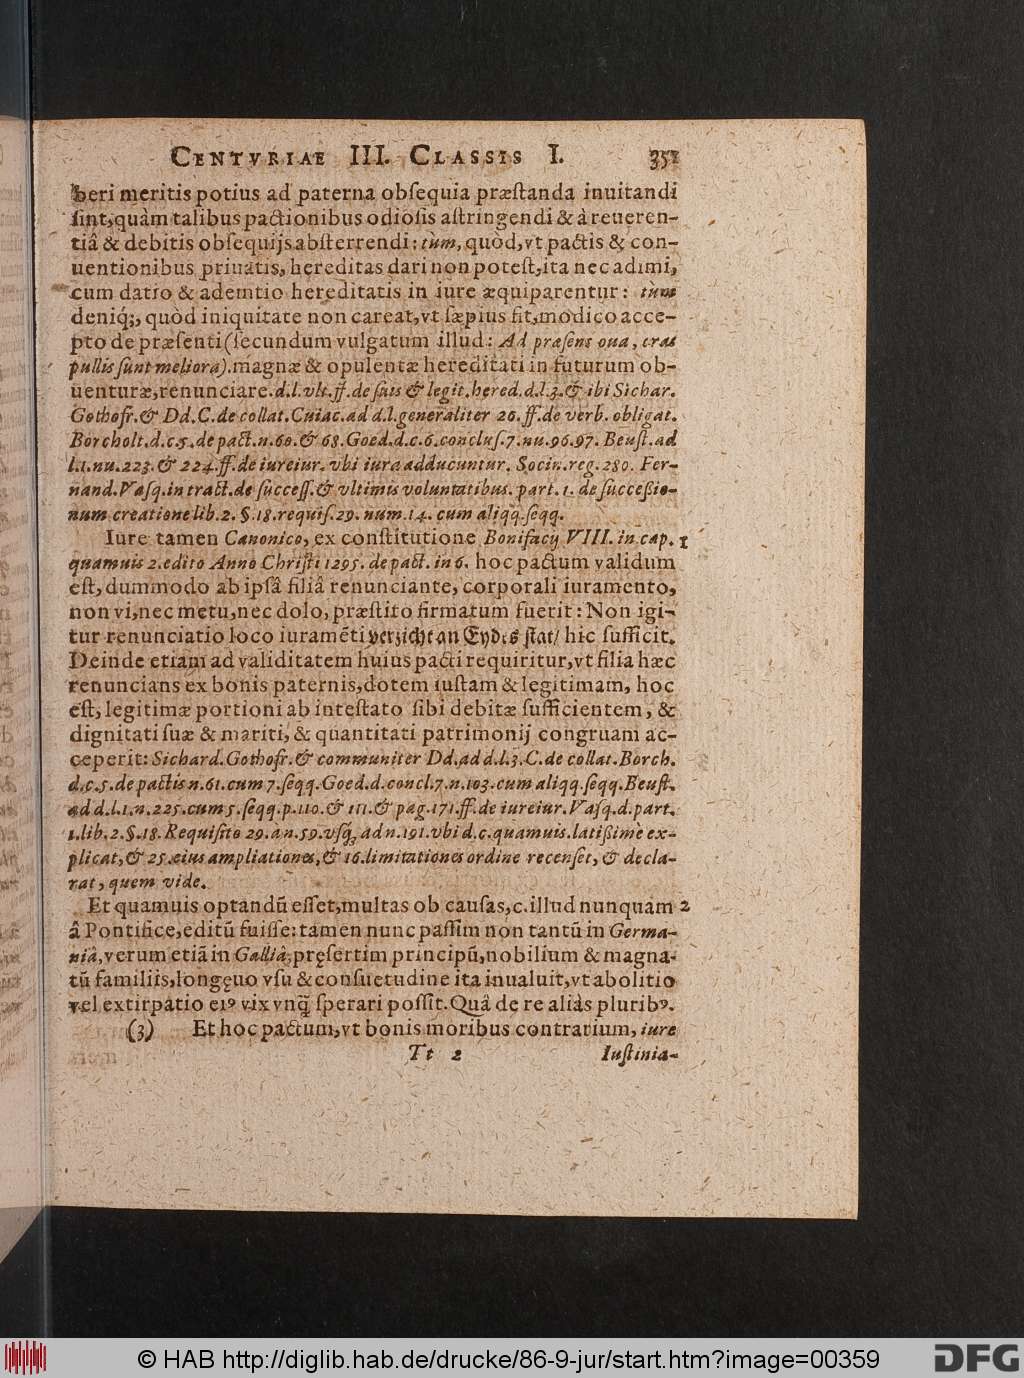 CENTVRIAE III. CLASSIS I. 351
beri meritis potius ad paterna obſequia præſtanda inuitandi
ſint, quàm talibus pactionibus odioſis aſtringendi & à reueren-
tiâ & debitis obſequijs abſterrendi: tùm, quòd, vt pactis & con-
uentionibus priuatis, hęreditas dari non poteſt, ita nec adimi,
cum datio & ademtio hęreditatis in iure æquiparentur: tùm
deniq́;, quòd iniquitate non careat, vt ſæpius fit, modico acce-
pto de præſenti (ſecundum vulgatum illud: Ad præſens oua, cras
pullis ſunt meliora). magnæ & opulentæ hereditati in futurum ob-
uenturæ, renunciare. d. l. vlt. ff. de ſuis & legit. hered. d. l. 3. & ibi Sichar.
Gothofr. & Dd. C. de collat. Cuiac. ad d. l. generaliter 26. ff. de verb. obligat.
Borcholt. d. c. 5. de pact. n. 60. & 68. Goed. d. c. 6. concluſ. 7. nu. 96. 97. Beuſt. ad
l. 1. nu. 223. & 224. ff. de iureiur. vbi iura adducuntur. Socin. reg. 280. Fer-
nand. Vaſq. in tract. de ſucceſſ. & vltimis voluntatibus. part. 1. de ſucceßio-
num creatione lib. 2. §. 18. requiſ. 29. num. 14. cum aliqq. ſeqq.
Iure tamen Canonico, ex conſtitutione Bonifacij VIII. in cap. 1
quamuis 2. edito Anno Chriſti 1295. de pact. in 6. hoc pactum validum
eſt, dummodo ab ipſâ filiâ renunciante, corporali iuramento,
non vi, nec metu, nec dolo, præſtito firmatum fuerit: Non igi-
tur renunciatio loco iuramẽti verzicht an Eydes ſtat/ hic ſufficit.
Deinde etiam ad validitatem huius pacti requiritur, vt filia hæc
renuncians ex bonis paternis, dotem iuſtam & legitimam, hoc
eſt, legitimæ portioni ab inteſtato ſibi debitæ ſufficientem, &
dignitati ſuæ & mariti, & quantitati patrimonij congruam ac-
ceperit: Sichard. Gothofr. & communiter Dd. ad d. l. 3. C. de collat. Borch.
d. c. 5. de pactis n. 61. cum 7. ſeqq. Goed. d. concl. 7. n. 103. cum aliqq. ſeqq. Beuſt.
ad d. l. 1. n. 225. cum 5. ſeqq. p. 110. & 111. & pag. 171. ff. de iureiur. Vaſq. d. part.
1. lib. 2. §. 18. Requiſito 29. à n. 59. vſq́; ad n. 191. vbi d. c. quamuis. latißimè ex-
plicat, & 25. eius ampliationes, & 16. limitationes ordine recenſet, & decla-
rat, quem vide.
Et quamuis optandũ eſſet, multas ob cauſas, c. illud nunquam 2
â Pontifice, editũ fuiſſe: tamen nunc paſſim non tantũ in Germa-
niâ, verum etiã in Galliâ, pręſertim principũ, nobilium & magna-
tũ familiis, longęuo vſu & conſuetudine ita inualuit, vt abolitio
vel extirpatio eiꝰ vix vnq̃ ſperari poſſit. Quâ de re aliàs pluribꝰ.
(3) Et hoc pactum, vt bonis moribus contrarium, iure
Tt 2 Iuſtinia-
© HAB http://diglib.hab.de/drucke/86-9-jur/start.htm?image=00359
DFG